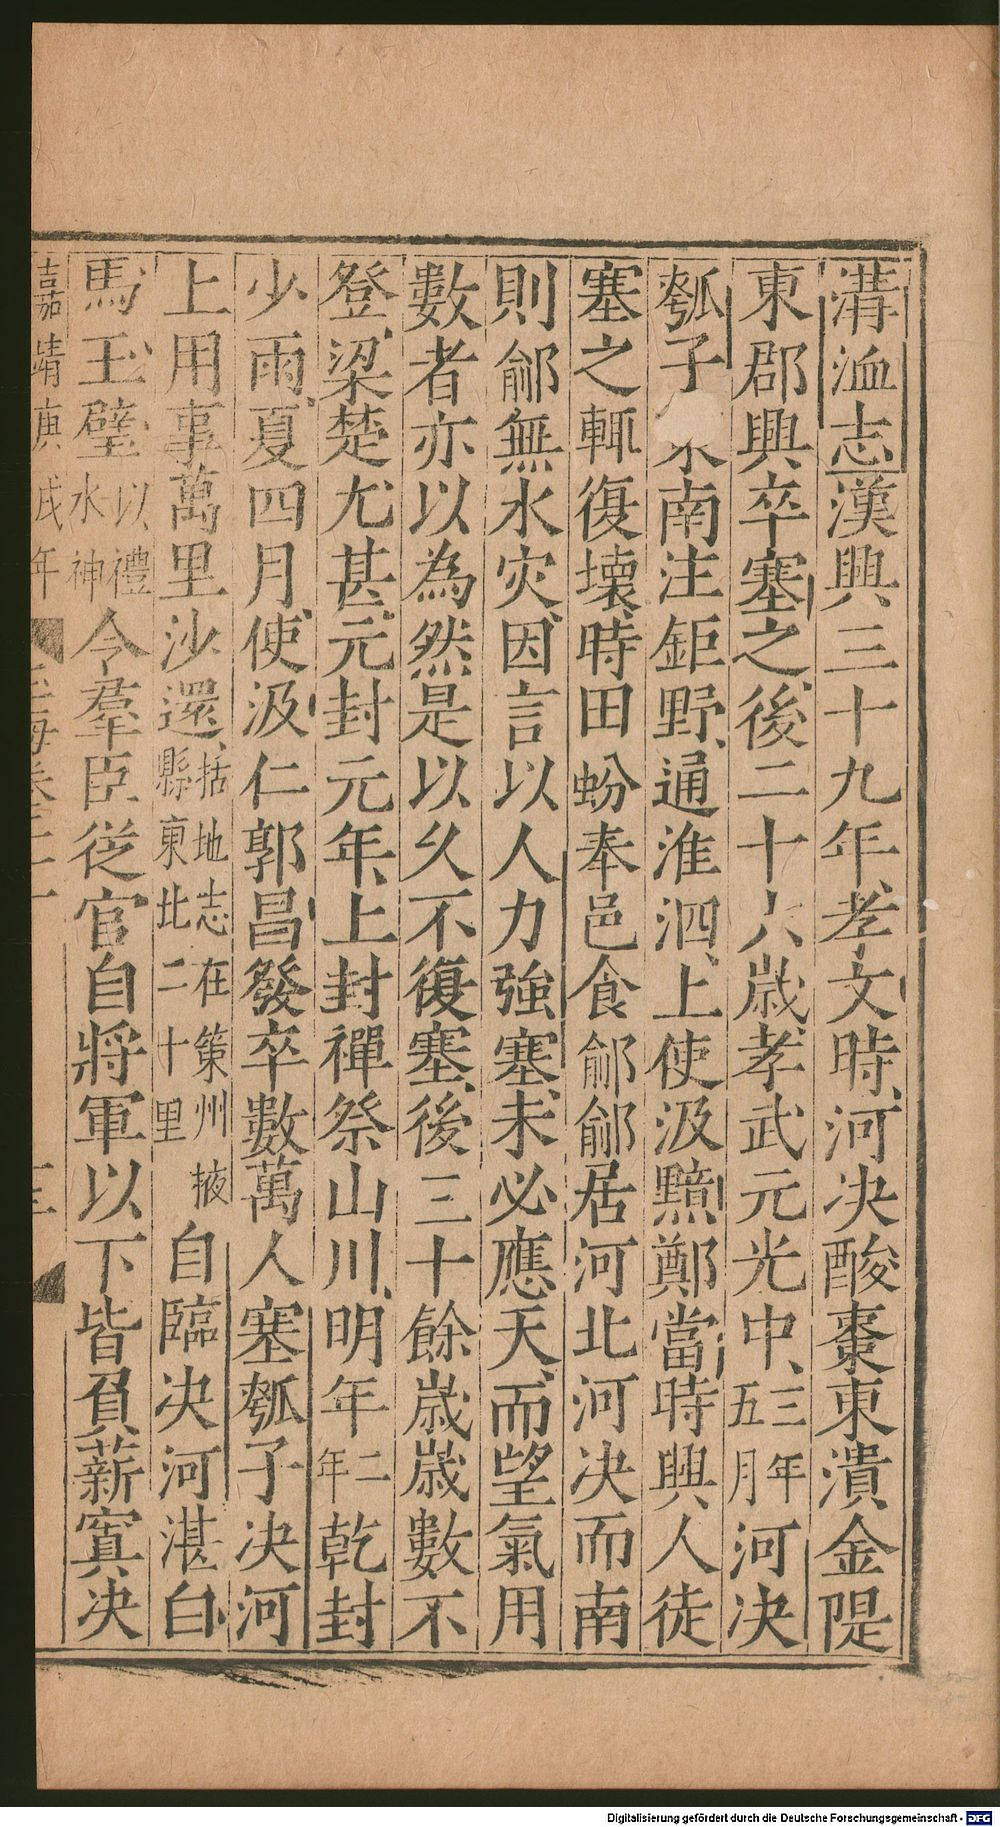 溝洫志漢興三十九年孝文時河决酸棗東潰金隄
東郡興卒塞之後二十六歲孝武元光中三年五月河决
瓠子東南注鉅野通淮泗上使汲黯鄭當時興人徒
塞之輒復壞時田蚡奉邑食鄃鄃居河北河决而南
則鄃無水灾因言以人力強塞未必應天而望氣用
數者亦以為然是以久不復塞後三十餘歲歲數不
登梁楚尤甚元封元年上封禪祭山川明年二年乾封
少雨夏四月使汲仁郭昌發卒數萬人塞瓠子决河
上用事萬里沙還括地志在策州掖縣東北二十里自臨决河湛白
馬玉璧以禮水神令羣臣從官自將軍以下皆負薪窴决
嘉靖庚戌年
Digitalisierung gefördert durch die Deutsche Forschungsgemeinschaft - DFG